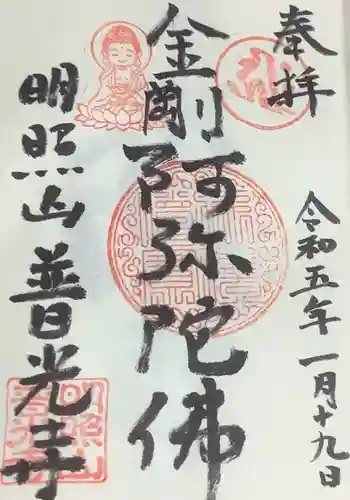 奉拝
令和五年一月十九日
金剛阿弥陀佛
明照山普光寺